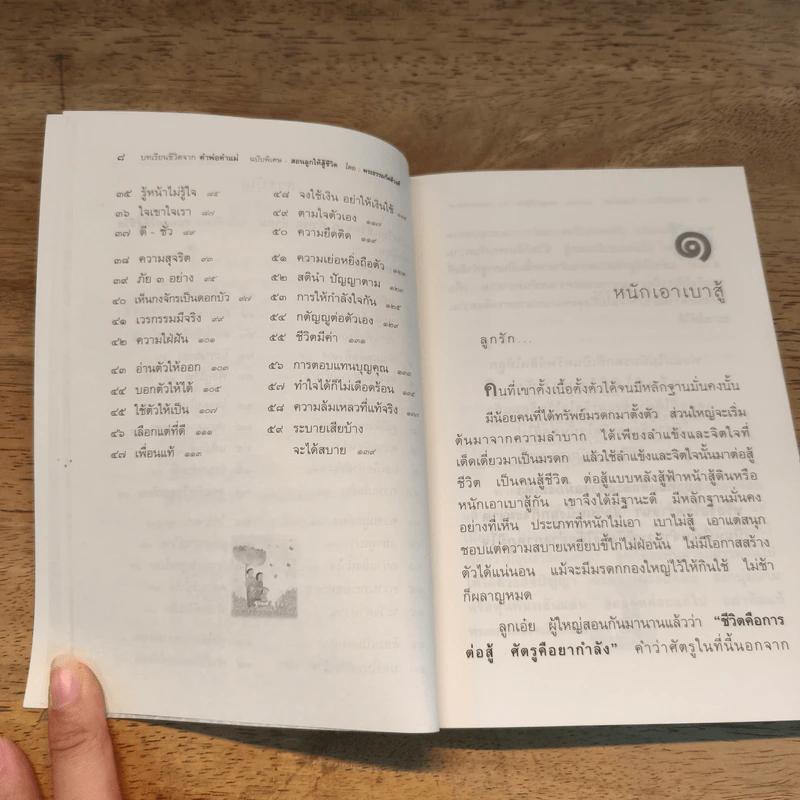 ๘ บทเรียนชีวิตจาก คำพ่อคำแม่ ฉบับพิเศษ - สอนลูกให้สู้ชีวิต โดย :
๓๕ รู้หน้าไม่รู้ใจ ๘๕
๓๖ ใจเขาใจเรา ๘๗
๓๗ ดี - ชั่ว ๘๙
๓๘ ความสุจริต ๙๓
๓๙ ภัย ๓ อย่าง ๙๕
๔๐ เห็นกงจักรเป็นดอกบัว ๙๗
๔๑ เวรกรรมมีจริง ๙๙
๔๒ ความใฝ่ฝัน ๑๐๑
๔๓ อ่านตัวให้ออก ๑๐๓
๔๔ บอกตัวให้ได้ ๑๐๕
๔๕ ใช้ตัวให้เป็น ๑๐๗
๔๖ เลือกแต่ที่ดี ๑๑๑
๔๗ เพื่อนแท้ ๑๑๓
๔๘ จงใช้เงิน อย่าให้เงินใช้
๔๙ ตามใจตัวเอง ๑๑๗
๕๐ ความยึดติด ๑๑๙
๕๑ ความเย่อหยิ่งถือตัว
๕๒ สตินำ ปัญญาตาม
๕๓ การให้กำลังใจกัน ๑๒๕
๕๔ กตัญญูต่อตัวเอง ๑๒๙
๕๕ ชีวิตมีค่า ๑๓๑
๕๖ การตอบแทนบุญคุณ ๑๓๓
๕๗ ทำใจได้ก็ไม่เดือดร้อน ๑๓๕
๕๘ ความล้มเหลวที่แท้จริง ๑๓๗
๕๙ ระบายเสียบ้าง
จะได้สบาย ๑๓๙
๑
หนักเอาเบาสู้
ลูกรัก...
คนที่เขาตั้งเนื้อตั้งตัวได้จนมีหลักฐานมั่นคงนั้น
มีน้อยคนที่ได้ทรัพย์มรดกมาตั้งตัว ส่วนใหญ่จะเริ่ม
ต้นมาจากความลำบาก ได้เพียงลำแข้งและจิตใจที่
เด็ดเดี่ยวมาเป็นมรดก แล้วใช้ลำแข้งและจิตใจนั้นมาต่อสู้
ชีวิต เป็นคนสู้ชีวิต ต่อสู้แบบหลังสู้ฟ้าหน้าสู้ดินหรือ
หนักเอาเบาสู้กัน เขาจึงได้มีฐานะดี มีหลักฐานมั่นคง
อย่างที่เห็น ประเภทที่หนักไม่เอา เบาไม่สู้ เอาแต่สนุก
ชอบแต่ความสบายเหยียบขี้ไก่ไม่ฝ่อนั้น ไม่มีโอกาสสร้าง
ตัวได้แน่นอน แม้จะมีมรดกกองใหญ่ไว้ให้กินใช้ ไม่ช้า
ก็ผลาญหมด
ลูกเอ๋ย ผู้ใหญ่สอนกันมานานแล้วว่า “ชีวิตคือการ
ต่อสู้ ศัตรูคือยากำลัง” คำว่าศัตรูในที่นี้นอกจาก